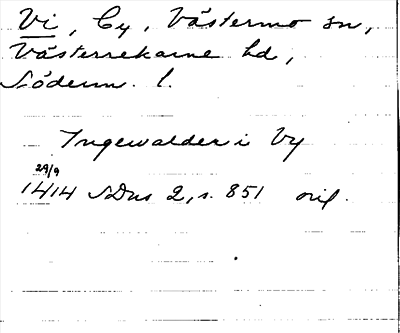 Vi, Cy, Västermo sn,
Västerrekarne hd,
Söderm. l.
Ingewalder i Vy
29/9
1414 SDns 2, s. 851 oril.